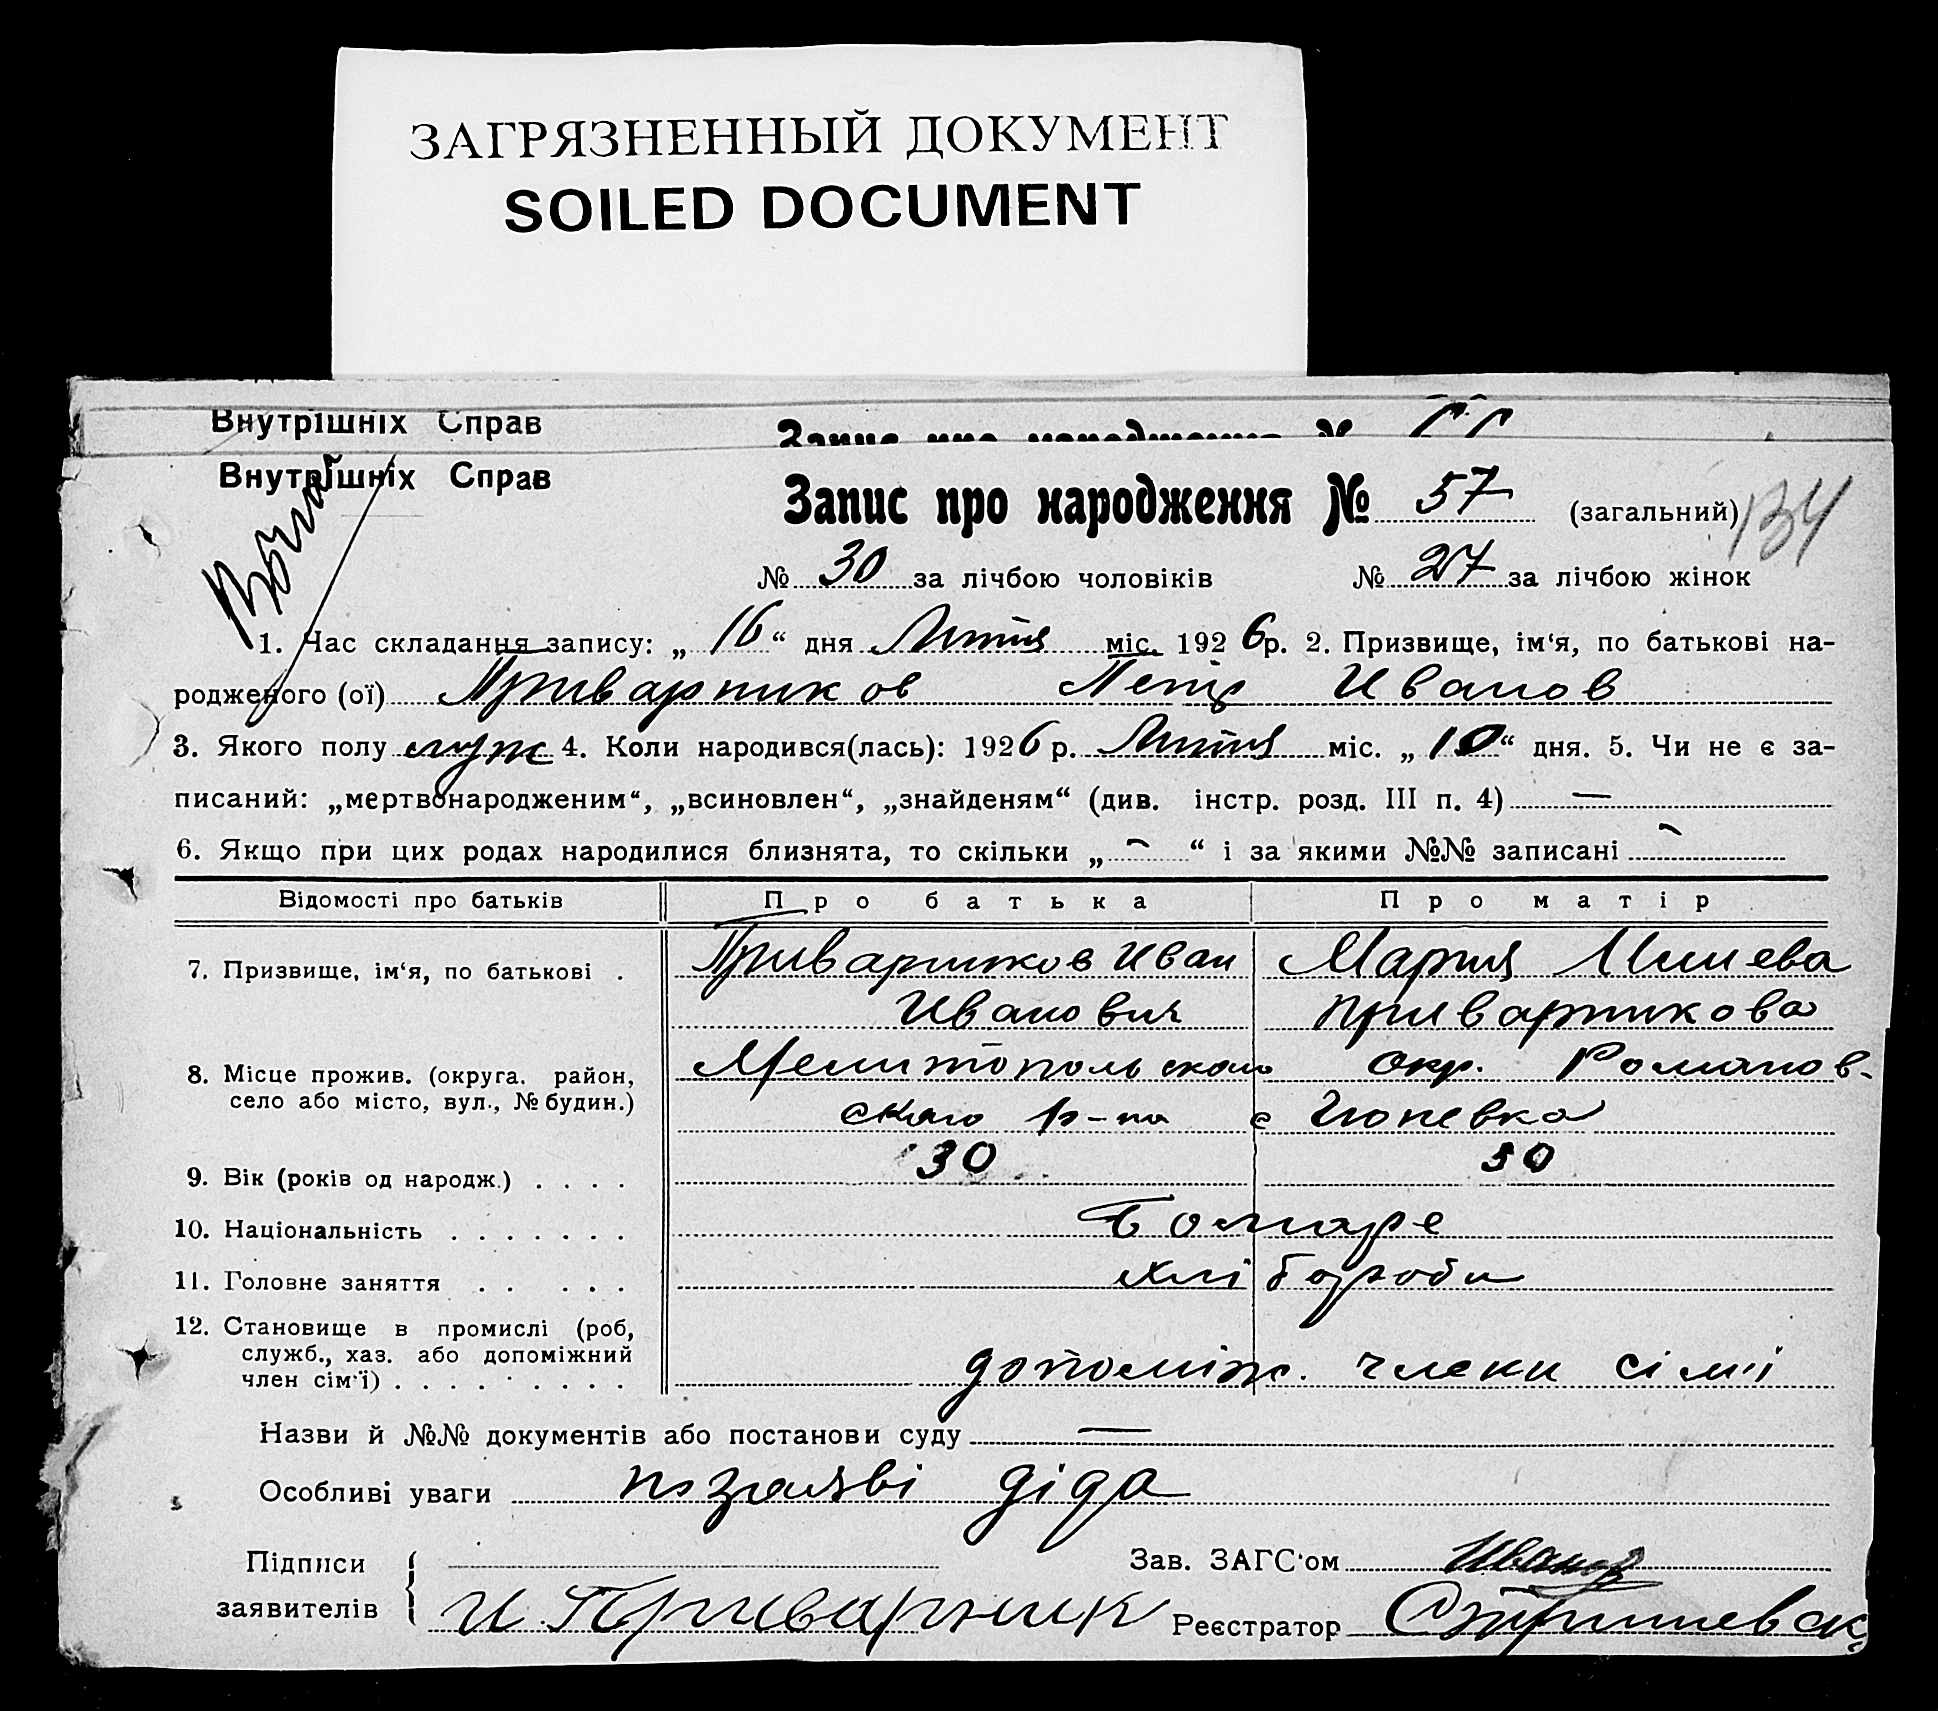 ЗАГРЯЗНЕННЫЙ ДОКУМЕНТ
SOILED DOCUMENT
Внутрішніх Справ
Запис про народження №
Внутрішніх Справ
Запис про народження № 57 (загальний) 134
№ 30 за лічбою чоловіків № 27 за лічбою жінок
1. Час складання запису: „ 16 “ дня Липня міс. 1926 р. 2. Призвище, ім‘я, по батькові на-
родженого (ої) Приварников Петр Иванов
3. Якого полу муж 4. Коли народився(лась): 1926 р. Липня міс. „ 10 “ дня. 5. Чи не є за-
писаний: „мертвонародженим“, „всиновлен“, „знайденям“ (див. інстр. розд. III п. 4) —
6. Якщо при цих родах народилися близнята, то скільки „ - “ і за якими №№ записані -
Відомості про батьків Про батька Про матір
7. Призвище, ім‘я, по батькові . Приварников Иван Мария
Иванович Приварникова
8. Місце прожив. (округа. район, Мелитопольского окр. Романов-
село або місто, вул., № будин.) ского р-на с
9. Вік (років од народж.) . . . . 30 30
10. Національність . . . . . . .
11. Головне заняття . . . . . хлібороби
12. Становище в промислі (роб,
служб., хаз. або допоміжний
член сім‘ї) . . . . . . . . . допоміж. члени сімʼї
Назви й №№ документів або постанови суду —
Особливі уваги по заяві діда
Підписи Зав. ЗАГС‘ом Иванов
заявителів И. Приварник Реєстратор